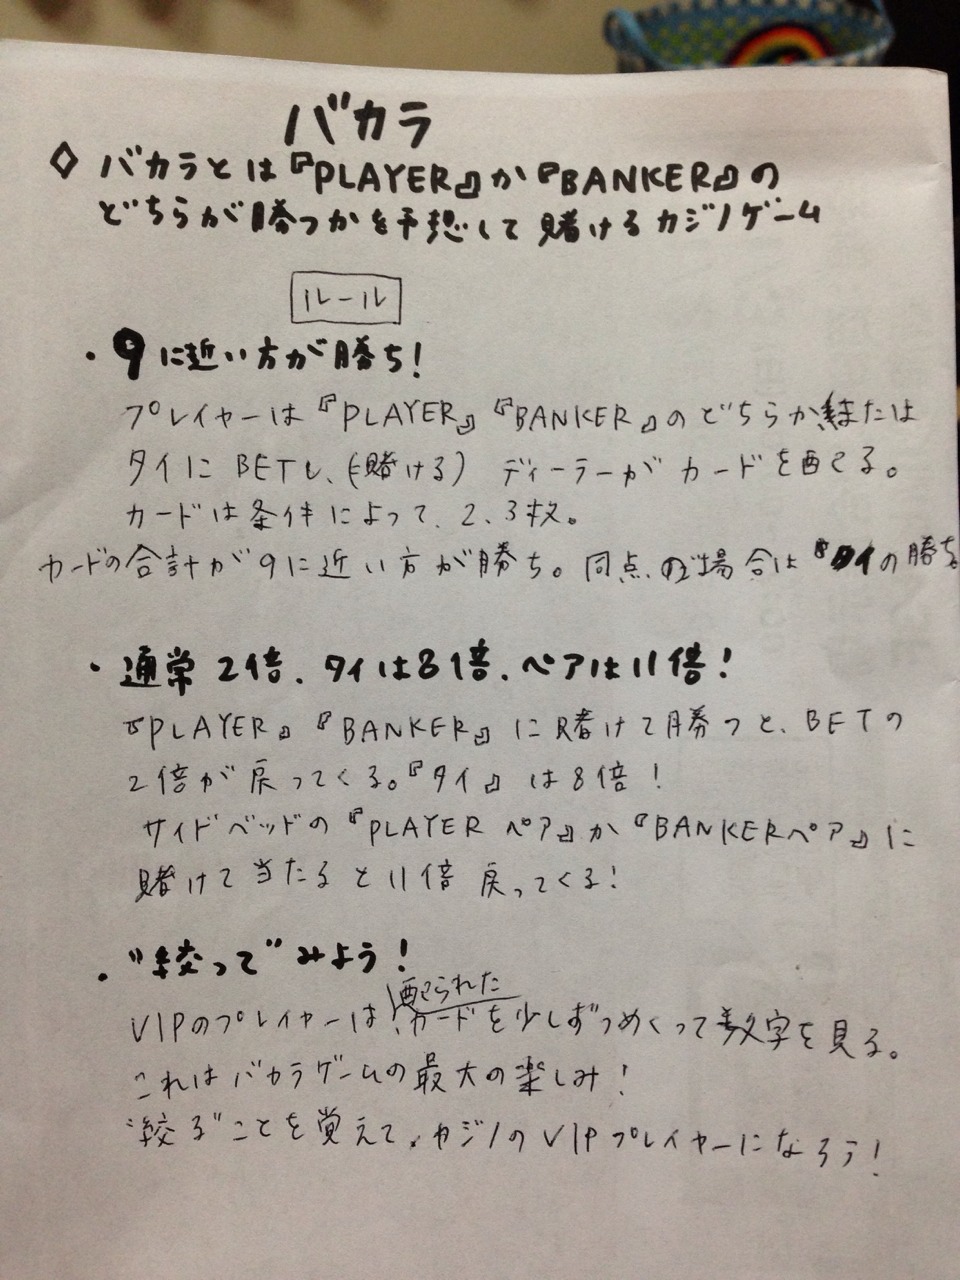 バカラ
◇ バカラとは『PLAYER』か『BANKER』の
どちらが勝つかを予想して賭けるカジノゲーム
ルール
・9に近い方が勝ち!
プレイヤーは『PLAYER』『BANKER』のどちらかまたは
タイにBETし、(賭ける) ディーラーがカードを配る。
カードは条件によって、2、3枚。
カードの合計が9に近い方が勝ち。同点の場合は『タイの勝ち。
・通常2倍、タイは8倍、ペアは11倍!
『PLAYER』『BANKER』に賭けて勝つと、BETの
2倍が戻ってくる。『タイ』は8倍!
サイドベッドの『PLAYERペア』か『BANKERペア』に
賭けて当たると11倍戻ってくる!
・"絞って"みよう!
VIPのプレイヤーは配られたカードを少しずつめくって数字を見る。
これはバカラゲームの最大の楽しみ!
"絞る"ことを覚えて、カジノのVIPプレイヤーになろう!